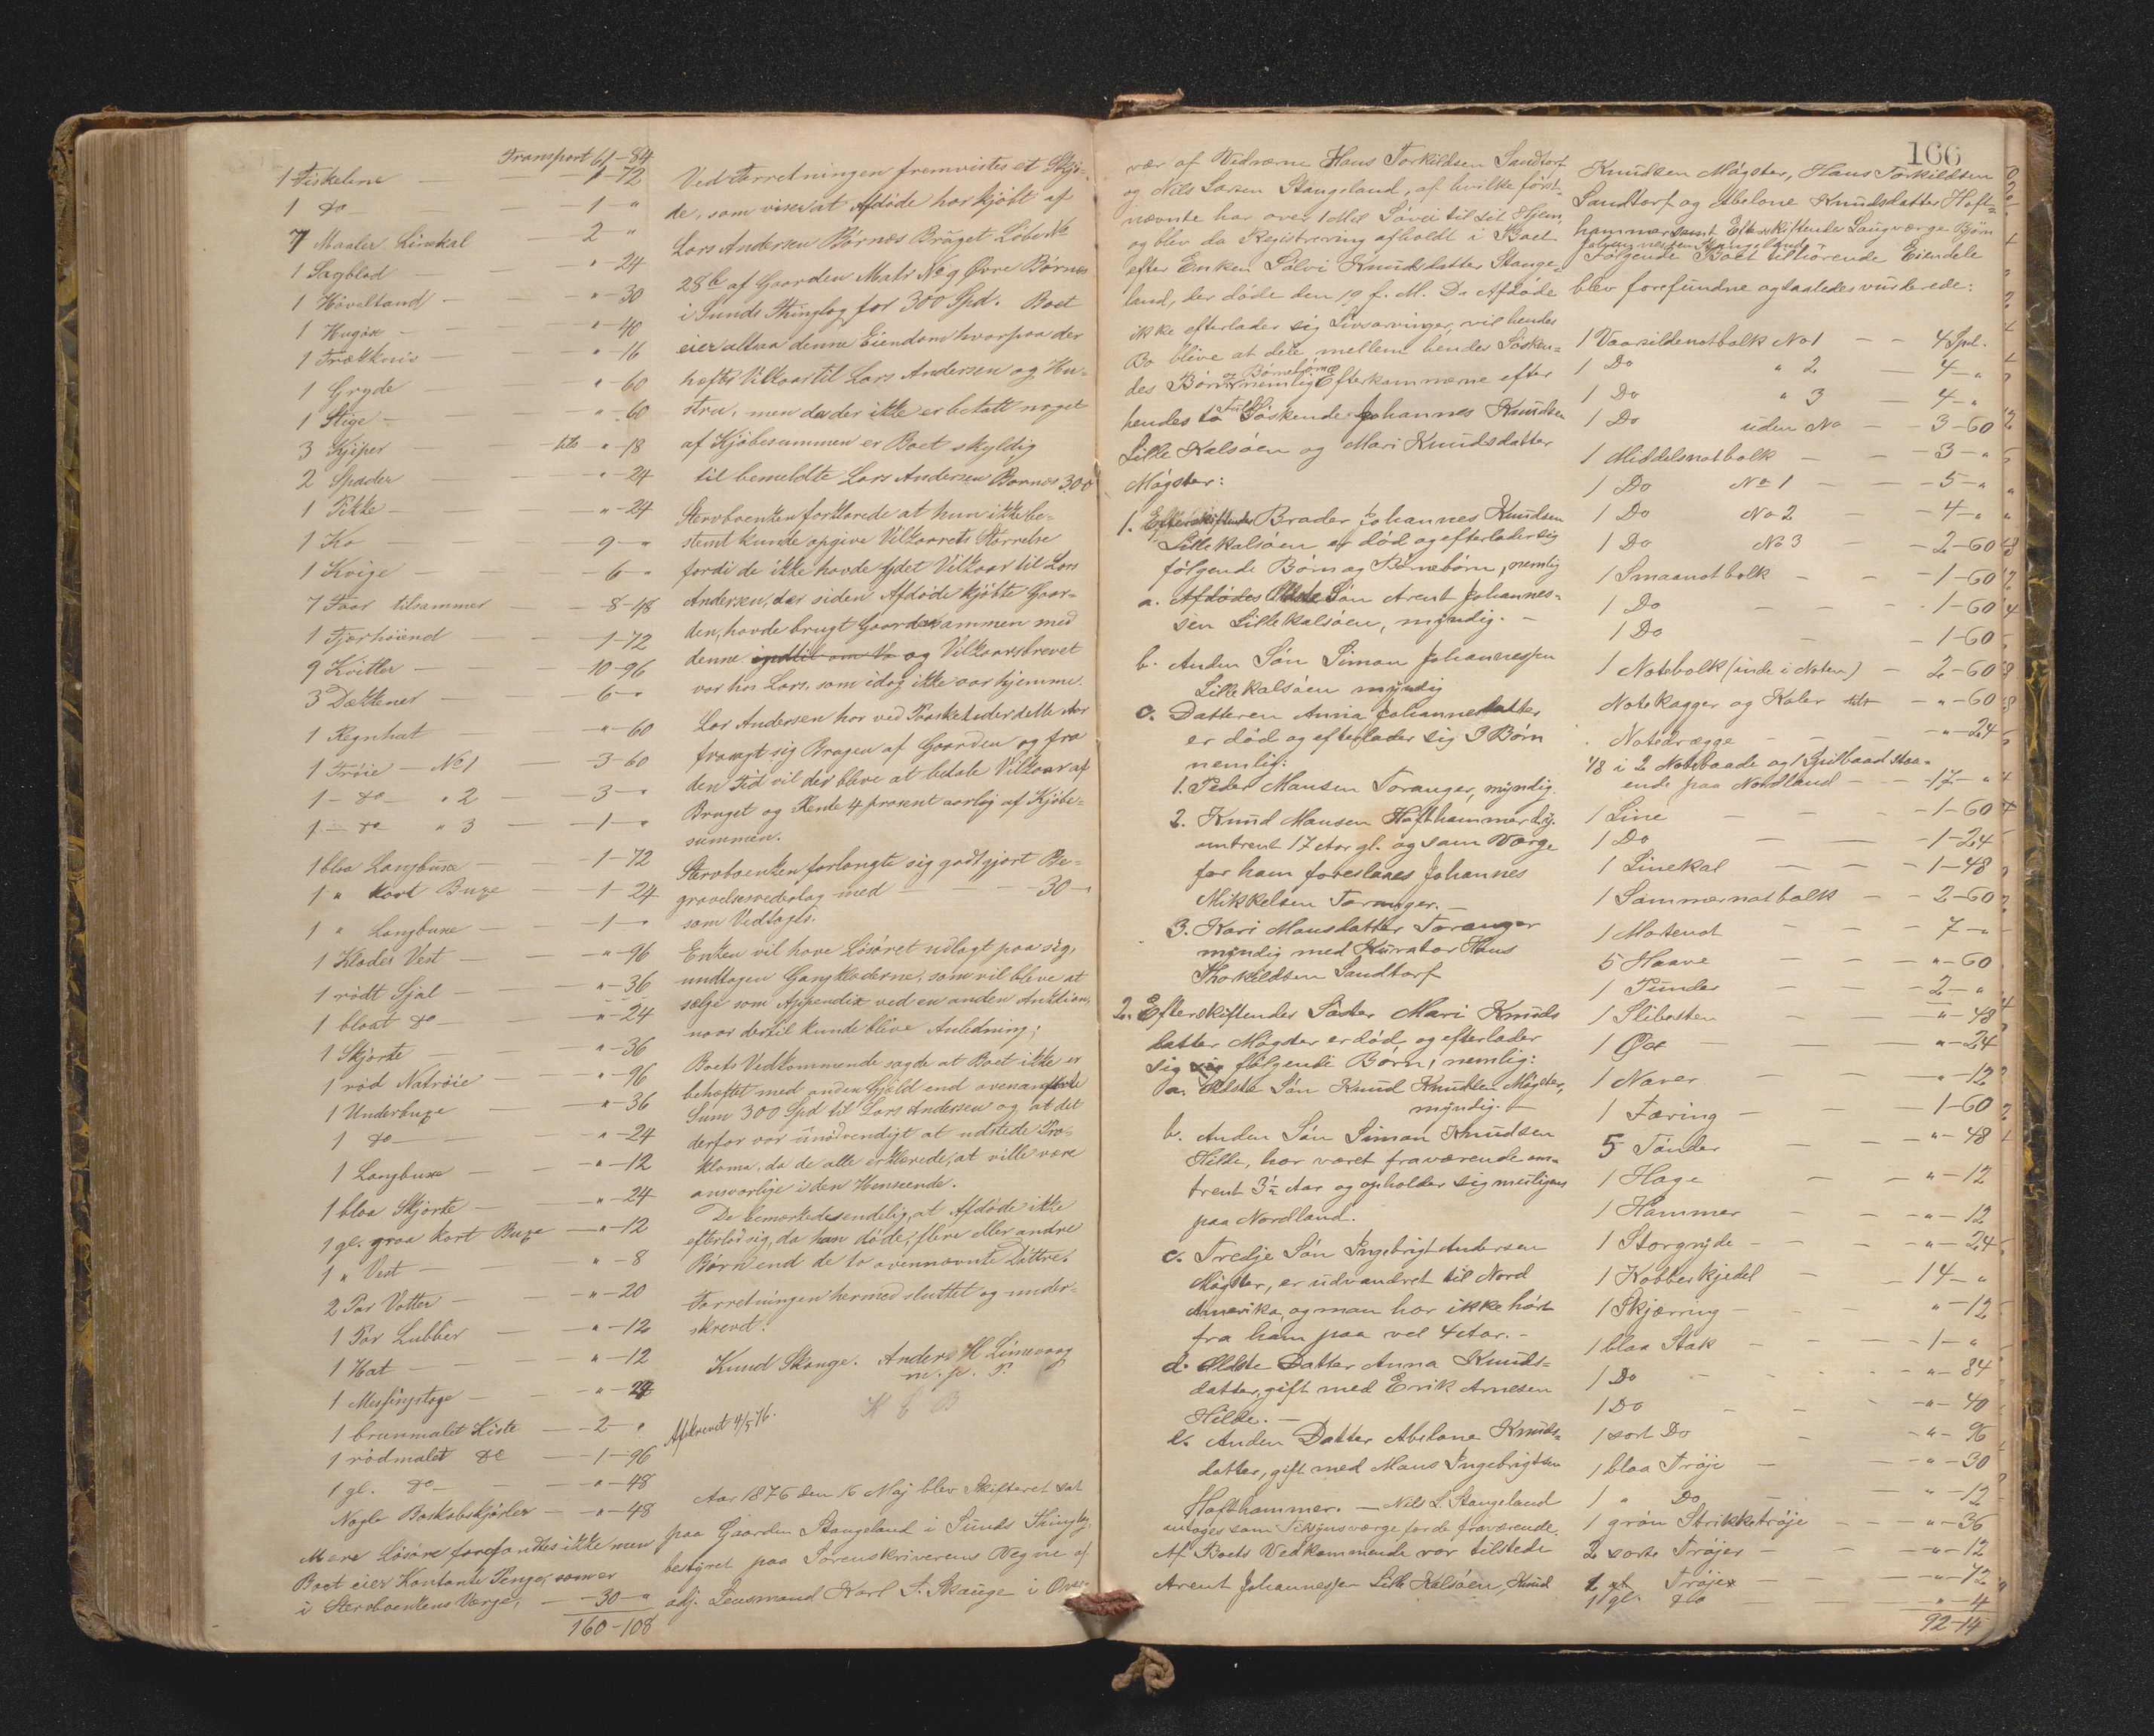 Transport 61-84
1 Fiskeline — 1-72
1 do — 1-"
7 Maaler Linekal — 2-"
1 Sagblad — "-24
1 Høveltand — "-30
1 Hugøx — "-40
1 — "-16
1 Gryde — "-60
1 Stige — "-60
3 Kjiper — tils "-18
2 Spader — "-24
1 Pikke — "-24
1 Ko — 9-"
1 Kvige — 6-"
7 Faar tilsammen — 8-48
1 Fjærhøiend — 1-72
9 Kvitler — 10-96
3 Dækkener — 6-"
1 Regnhat — "-60
1 Trøie — No 1 — 3-60
1 — do — " 2 — 3-"
1 — do " 3 — 1-"
1 blaa Langbuxe — 1-72
1 " kort Buxe — 1-24
1 " Langbuxe — 1-"
1 Klædes Vest — "-96
1 rødt Sjal — "-36
1 blaat do — "-24
1 Skjorte — "-36
1 rød Natrøie — "-96
1 Underbuxe — "-36
1 do — "-24
1 Langbuxe — "-12
1 blaa Skjorte — "-24
1 gl. graa kort Buxe — "-12
1 " Vest — "-8
2 Par Votter — "-20
1 Par Lubber — "-12
1 Hat — "-12
1 Messingstage — "-24
1 brunmalet Kiste — 2-"
1 rødmalet do — 1-96
1 gl. do — "-48
Nogle Boskabskjørler — "-48
Mere Løsøre forefandtes ikke men
Boet eier Kontante Penge, som er
i Stervboenkens Værge, — 30-"
160-108
Ved Forretningen fremvistes et Skjø-
de, som viser at Afdøde har kjøbt af
Lars Andersen Børnes Bruget Løbe No
28b af Gaarden Matr No 9 Øvre Børnes
i Sunds Thinglag for 300 Spd. Boet
eier altsaa denne Eiendom hvorpaa der
hefter Vilkaar til Lars Andersen og Hu-
stru, men da der ikke er betalt noget
af Kjøbesummen er Boet skyldig
til bemeldte Lars Andersen Børnes 300
Stervboenken forklarede at hun ikke be-
stemt kunde opgive Vilkaarets Størrelse
fordi de ikke havde ydet Vilkaar til Lars
Andersen, der siden Afdøde kjøbte Gaar-
den, havde brugt Gaarden sammen med
denne og Vilkaarsbrevet
var hos Lars, som idag ikke var hjemme.
Lars Andersen har ved Paasketider dette Aar
fragt sig Brugen af Gaarden og fra
den Tid vil der blive at betale Vilkaar af
Bruget og Rente 4 prosent aarlig af Kjøbe-
summen.
Stervboenken forlangte sig godtgjort Be-
gravelsesvederlag med — 30-"
som Vedtoges.
Enken vil have Løsøret udlagt paa sig,
undtagen Gangklæderne, som vil blive at
sælge som Appendix ved en anden Auktion,
naar dertil kunde blive Anledning;
Boets Vedkommende sagde at Boet ikke er
behæftet med anden Gjæld end ovenanførte
Sum 300 Spd til Lars Andersen og at det
derfor var unødvendigt at udstede Pro-
klama, da de alle erklærede, at ville være
ansvarlige i den Henseende.
De bemærkedes endelig, at Afdøde ikke
efterlod sig, da han døde, flere eller andre
Børn end de to ovennævnte Døttre.
Forretningen hermed sluttet og under-
skrevet.
Knud Skauge. Anders H Limevaag
m. p. P.
K E B
Afskrevet 4/5 76.
Aar 1876 den 16 Maj blev Skifteret sat
paa Gaarden Stangeland i Sunds Thinglag,
bestyret paa Sorenskriverens Vegne af
adj. Lensmand Karl S. Skauge i Over-
166
vær af Vidnerne Hans Torkildsen Sandtorf
og Nils Larsen Stangeland, af hvilke først-
nævnte har over 1 Mil Søvei til sit Hjem,
og blev da Registrering afholdt i Boet
efter Enken Sølvi Knudsdatter Stange-
land, der døde den 19 f. M. Da Afdøde
ikke efterlader sig Livsarvinger, vil hendes
Bo blive at dele mellem hendes Søsken-
des Børn og Børnebørn nemlig Efterkommerne efter
hendes to Søskende Johannes Knudsen
Lille Kalsøen og Mari Knudsdatter
Møgster:
1. Efterskiftendes Broder Johannes Knudsen
Lille kalsøen er død og efterlader sig
følgende Børn og Børnebørn, nemlig
a. Afdødes Ældste Søn Arent Johannes-
sen Lille kalsøen, myndig. —
b. Anden Søn Simon Johannessen
Lille kalsøen myndig
c. Datteren Anna Johannesdatter
er død og efterlader sig 3 Børn
nemlig:
1. Peder Mansen Toranger, myndig.
2. Knud Mansen Hafthammer d.y.
omtrent 17 Aar gl. og som Værge
for ham foreslaaes Johannes
Mikkelsen Toranger. —
3. Kari Mansdatter Toranger
myndig med Kurator Hans
Thorkildsen Sandtorf
2. Efterskiftendes Søster Mari Knuds
datter Møgster er død og efterlader
sig følgende Børn, nemlig:
a. Ældste Søn Knud Knudsen Møgster,
myndig. —
b. Anden Søn Simon Knudsen
Hilde, har været fraværende om-
trent 3½ Aar og opholder sig muligens
paa Nordland.
c. Tredje Søn Ingebrigt Andersen
Møgster, er udvandret til Nord
Amerika, og man har ikke hørt
fra ham paa vel 4 Aar. —
d. Ældste Datter Anna Knuds-
datter, gift med Erik Arnesen
Hilde. —
e. Anden Datter Abelone Knuds-
datter, gift med Mans Ingebrigtsen
Hafthammer. — Nils L. Stangeland
antoges som Tilsynsværge for de fraværende.
Af Boets Vedkommende var tilstede
Arent Johannessen Lille Kalsøen, Knud
Knudsen Møgster, Hans Torkildsen
Sandtorf og Abelone Knudsdatter Haft-
hammer samt Efterskiftendes Laugværge Bjørn
Stangeland.
Følgende Boet tilhørende Eiendele
blev forefundne og saaledes vurderede:
1 Vaarsildenotbolk No 1 — 4 Spd.
1 Do " 2 — 4-"
1 Do " 3 — 4-"
1 Do uden No — 3-60
1 Middelsnotbolk — 3-"
1 Do No 1 — 5-"
1 Do No 2 — 4-"
1 Do No 3 — 2-60
1 Smaanotbolk — 1-60
1 Do — 1-60
1 Do — 1-60
1 Notebolk (inde i Noten) — 2-60
Notekagger og Kaler tils — "-60
Notedrægge — "-24
1/8 i 2 Notebaade og 1 Spilbaad staa-
ende paa Nordland — 17-"
1 Line — 1-60
1 Do — 1-24
1 Linekal — 1-48
1 Sommernotbolk — 2-60
1 Mortenot — 7-"
5 Haave — "-60
1 Punder — 2-"
1 Slibesten — "-48
1 Øx — "-24
1 Naver — "-12
1 Færing — 1-60
5 Tønder — "-48
1 Hage — "-12
1 Hammer — "-12
1 Storgryde — "-24
1 Kobberkjedel — 14-"
1 Skjærring — "-12
1 blaa Stak — 1-"
1 Do — "-84
1 Do — "-40
1 sort Do — "-96
1 blaa Trøje — "-30
1 " Do — "-12
1 grøn Strikketrøje — "-36
2 sorte Trøjer — "-12
2 gl. Trøjer — "-72
1 gl. do — "-4
92-14